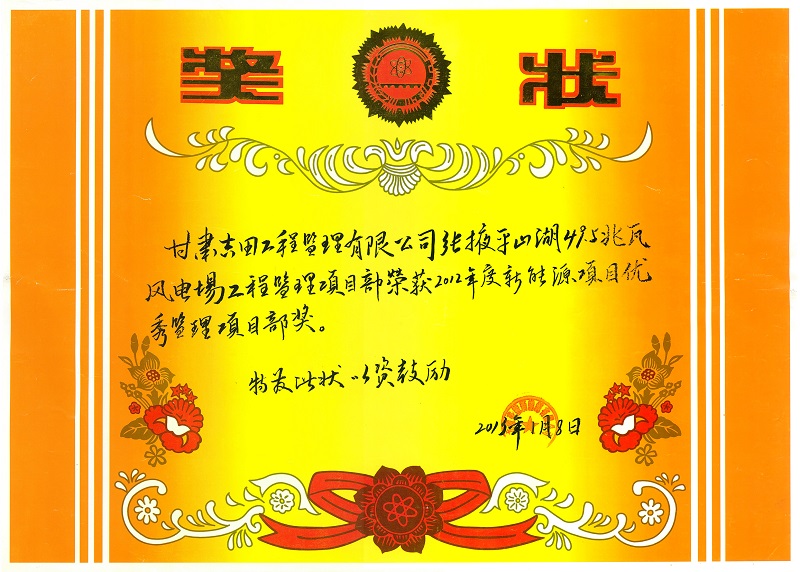 奖状
甘肃吉田工程监理有限公司张掖平山湖49.5兆瓦
风电場工程监理项目部荣获2012年度新能源项目优
秀监理项目部奖。
特发此状 以资鼓励
2013年1月8日